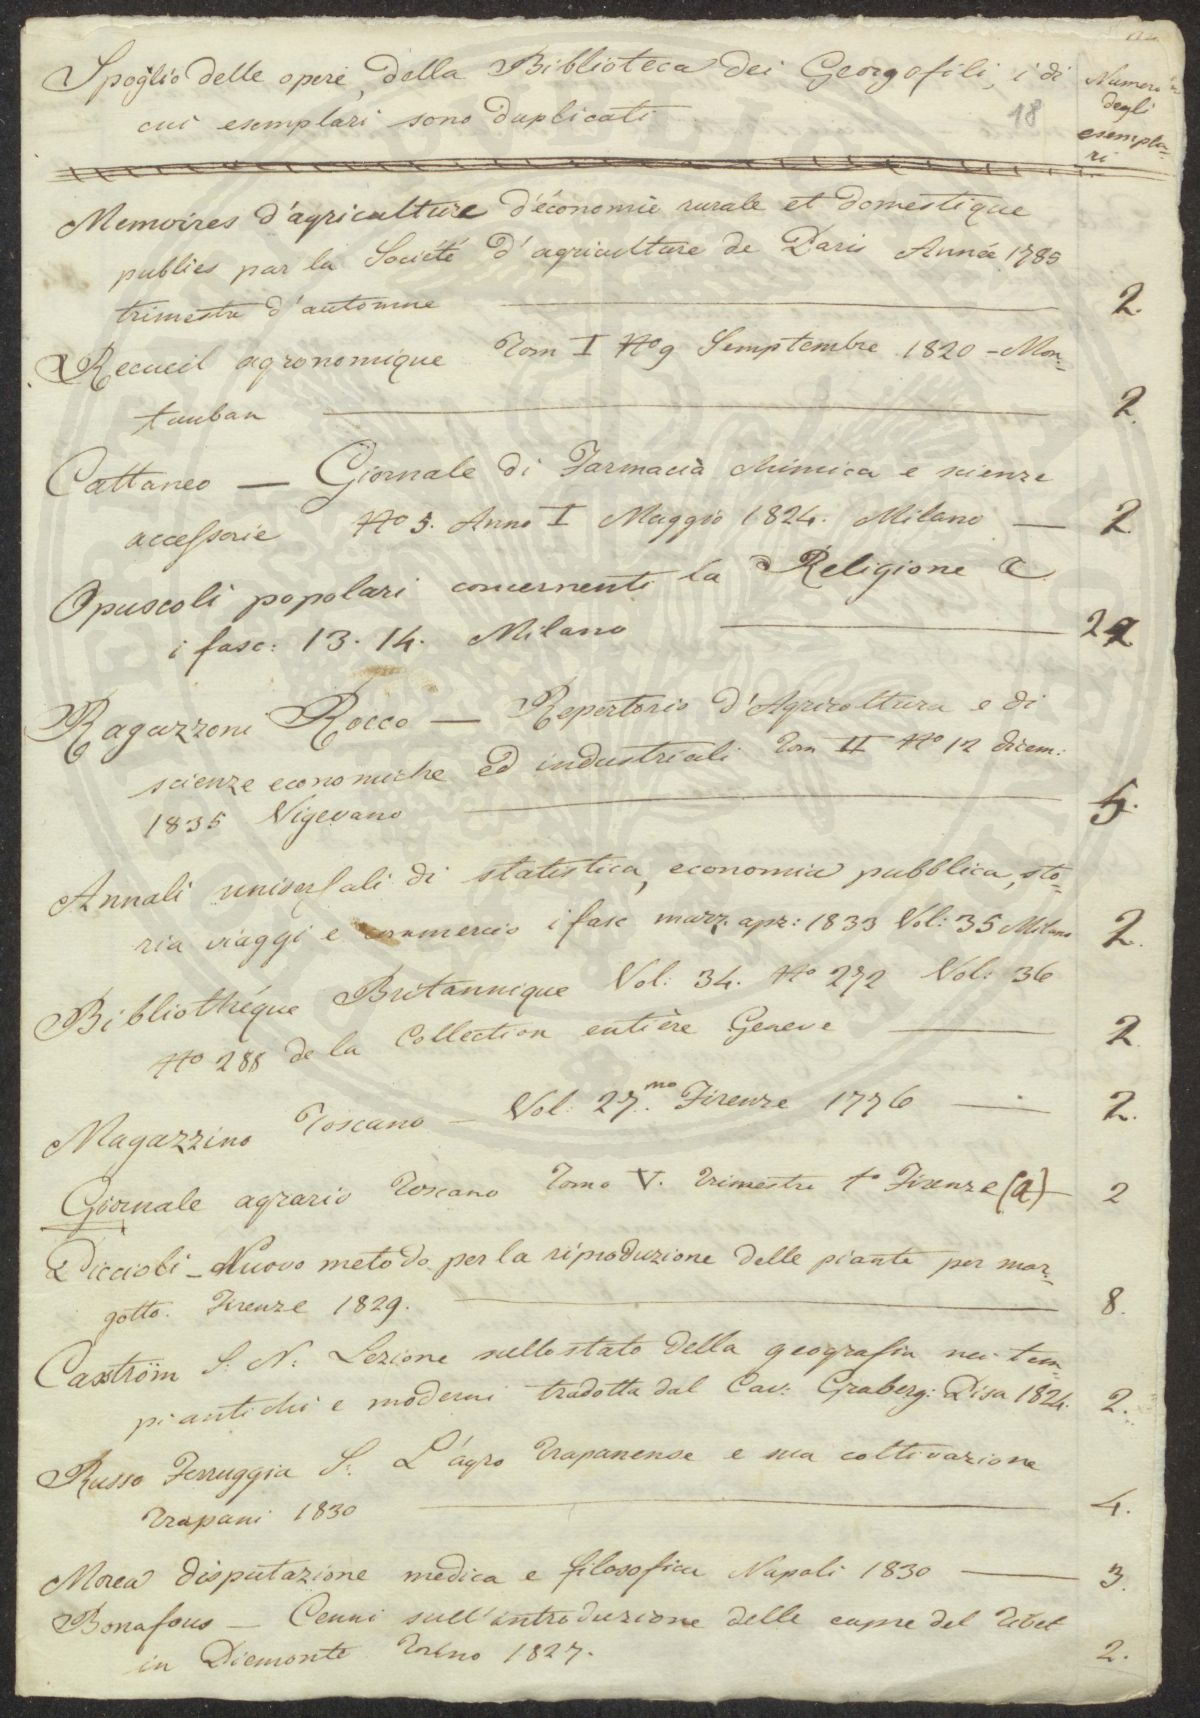 Spoglio delle opere, della Biblioteca dei Georgofili, i di
cui esemplari sono duplicati
18
Numero
degli
esempla=
ri
Memoires d'agriculture d'économie rurale et domestique
publies par la Société d'agriculture de Paris Année 1785
trimestre d'automne 2.
Recueil agronomique Tom I No 9 Semptembre 1820 - Mon=
tauban 2.
Cattaneo — Giornale di Farmacia chimica e scienze
accessorie No 5. Anno I Maggio 1824. Milano — 2
Opuscoli popolari concernenti la Religione &
i fasc: 13. 14. Milano 2
Ragazzoni Rocco — Repertorio d'Agricoltura e di
scienze economiche ed industriali Tom II No 12 dicem:
1835 Vigevano 5.
Annali universali di statistica, economia pubblica, sto=
ria viaggi e commercio i fasc marz. apr: 1833 Vol: 35 Milano 2.
Bibliothéque Britannique Vol: 34. No 272 Vol: 36
No 288 de la Collection entière Geneve 2
Magazzino Toscano — Vol: 27.mo Firenze 1776 — 2.
Giornale agrario Toscano Tomo V. Trimestre 1o Firenze (a) — 2
Piccioli - Nuovo metodo per la riproduzione delle piante per mar=
gotto. Firenze 1829. 8.
Caström S. N. Lezione sullo stato della geografia nei tem=
pi antichi e moderni tradotta dal Cav: Graberg: Pisa 1824. 2.
Russo Ferruggia S. L'agro Trapanense e sua coltivazione
Trapani 1830 4.
Morea disputazione medica e filosofica Napoli 1830 — 3.
Bonafous — Cenni sull'introduzione delle capre del Tibet
in Piemonte Torino 1827. 2.